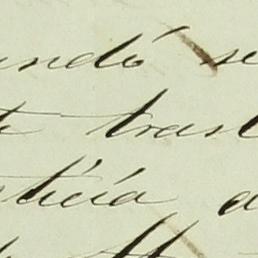 undó se
te tras
ticia a